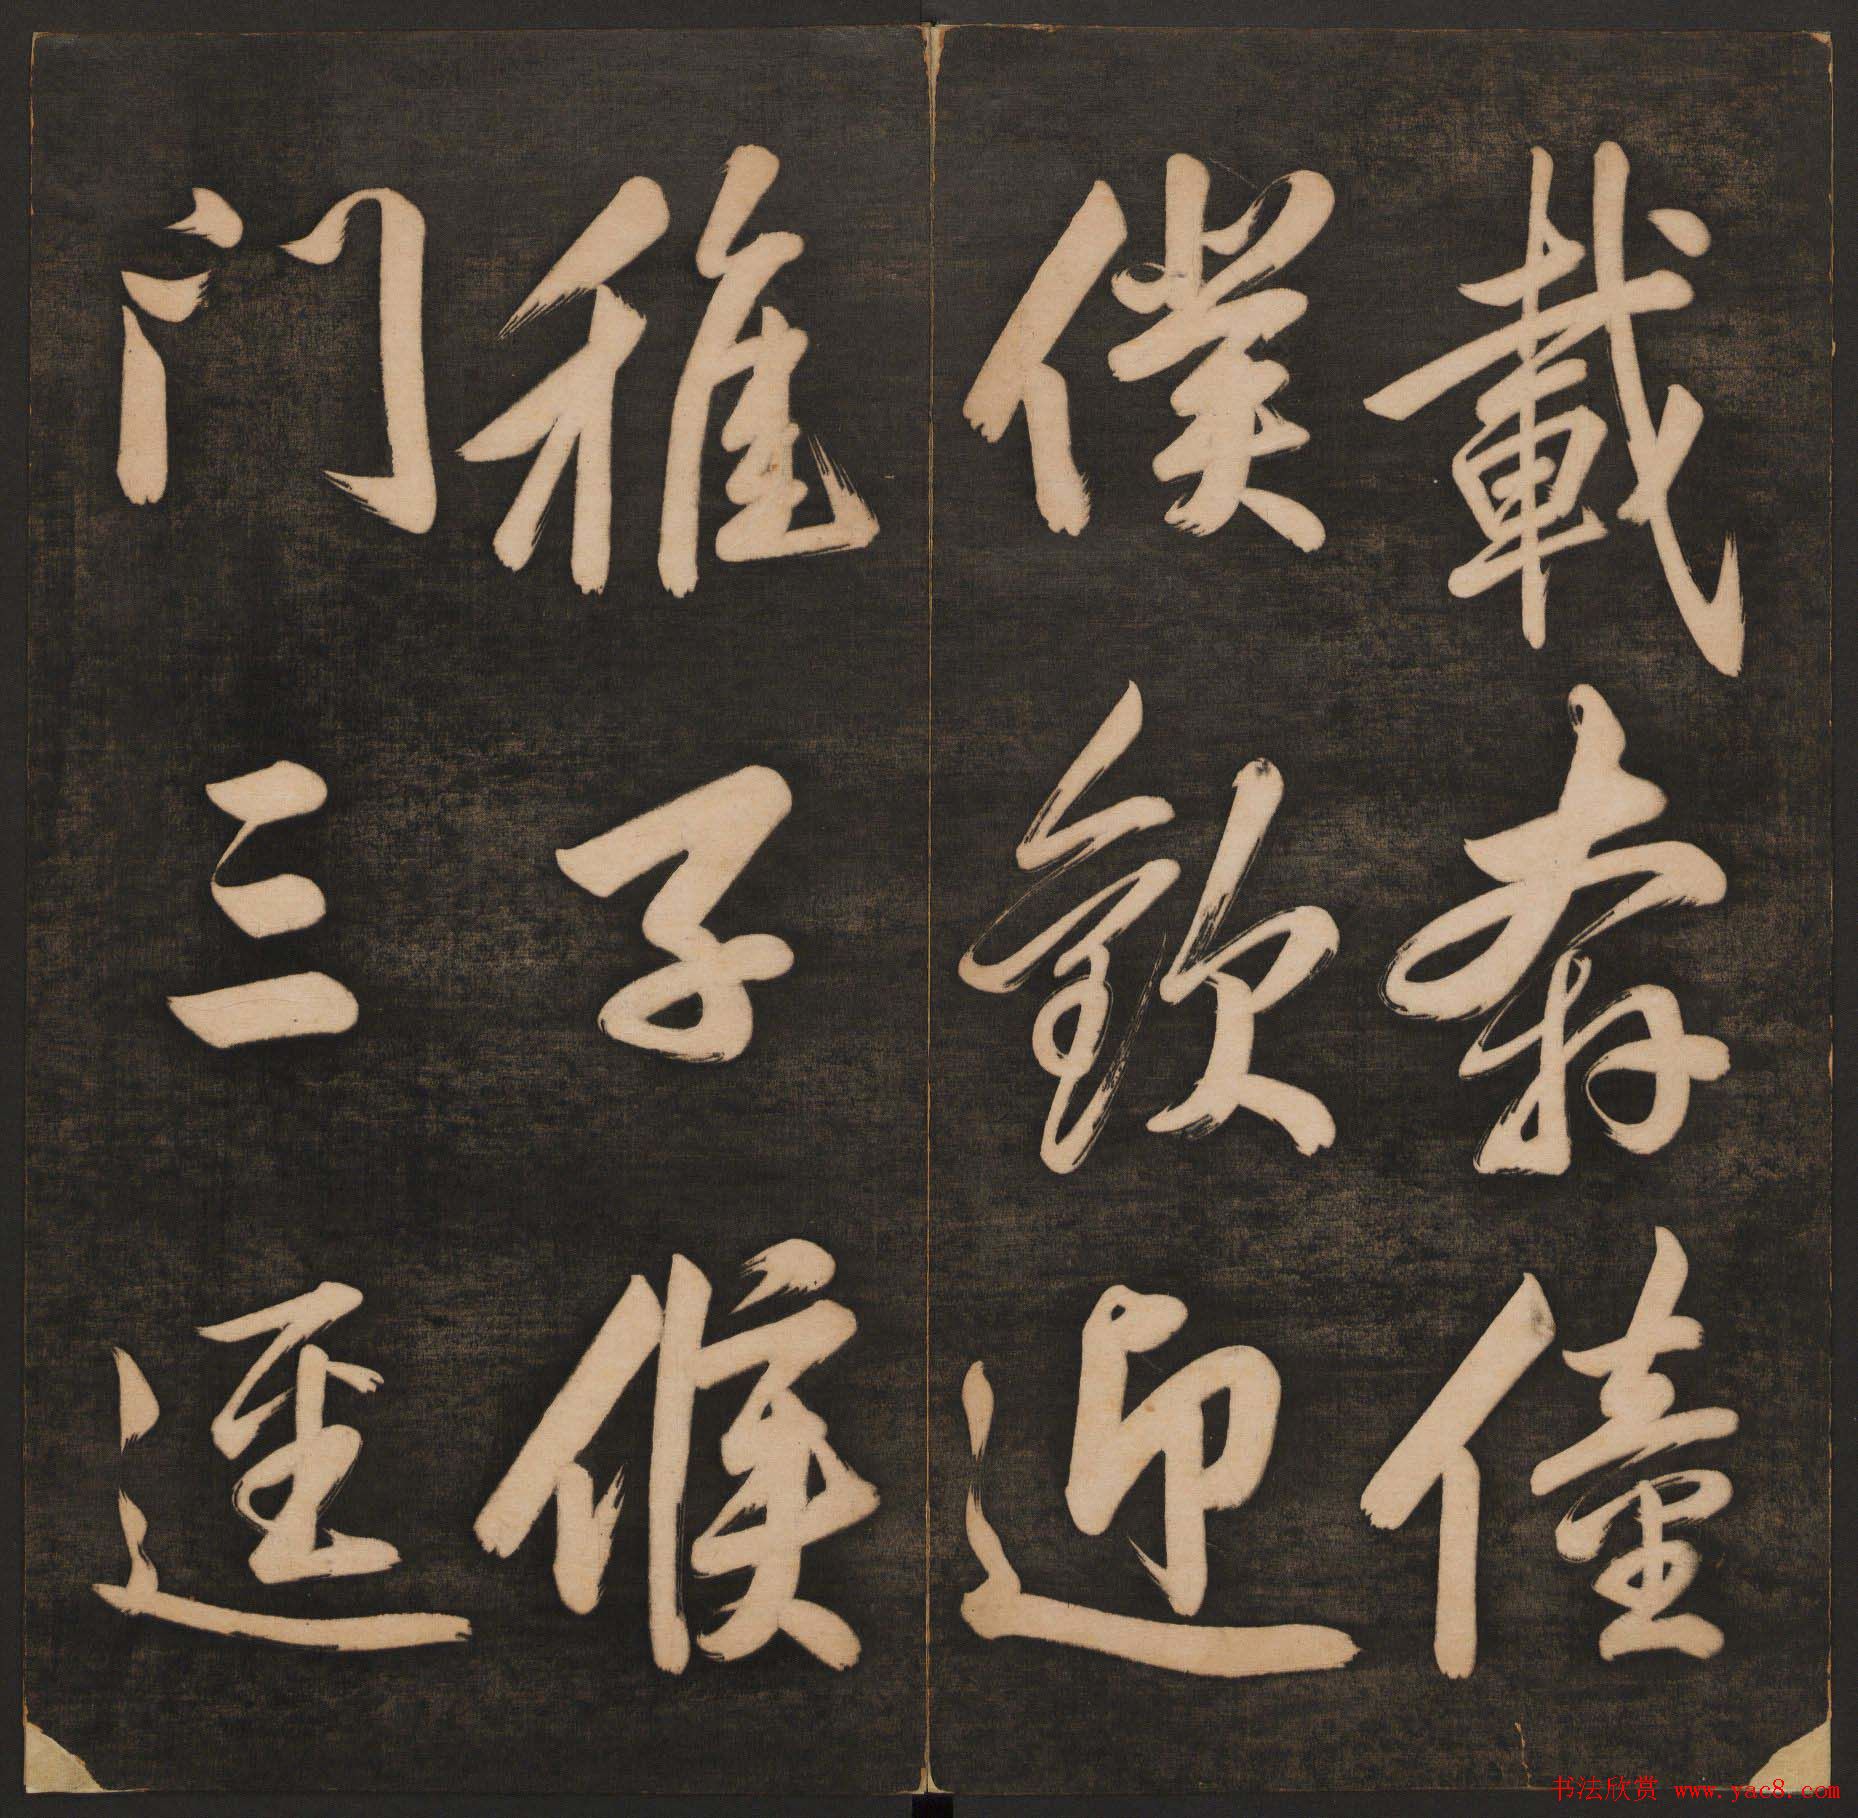 載奔僮
僕歡迎
稚子候
门三逕
书法欣赏 www.yac8.com